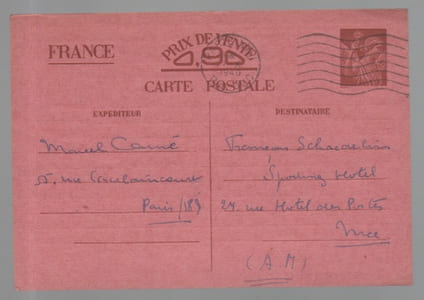 FRANCE
PRIX DE VENTE
0,90
CARTE POSTALE
EXPÉDITEUR
DESTINATAIRE
Marcel Carné
rue
Paris (18)
François
Sporting Hotel
24, rue Hotel des Postes
Nice
(A.M)